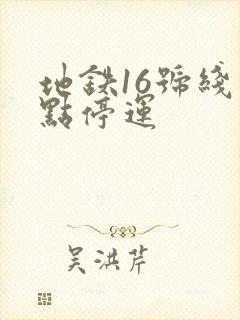 地鉄16號綫
點停運
吳洪芹